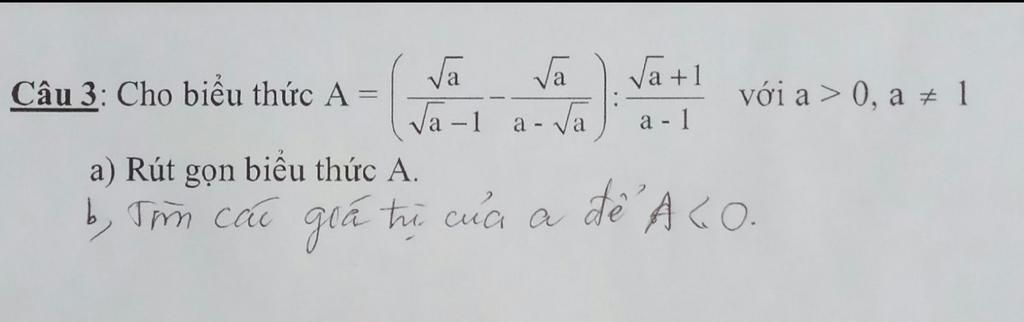 Câu 3: Cho biểu thức A = (√a/(√a − 1) − √a/(a - √a)) : (√a + 1)/(a - 1) với a > 0, a ≠ 1
a) Rút gọn biểu thức A.
b, Tìm các giá trị của a để A < 0.